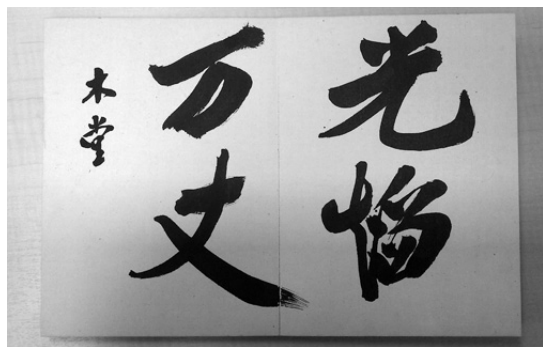 光焰
万丈
木堂